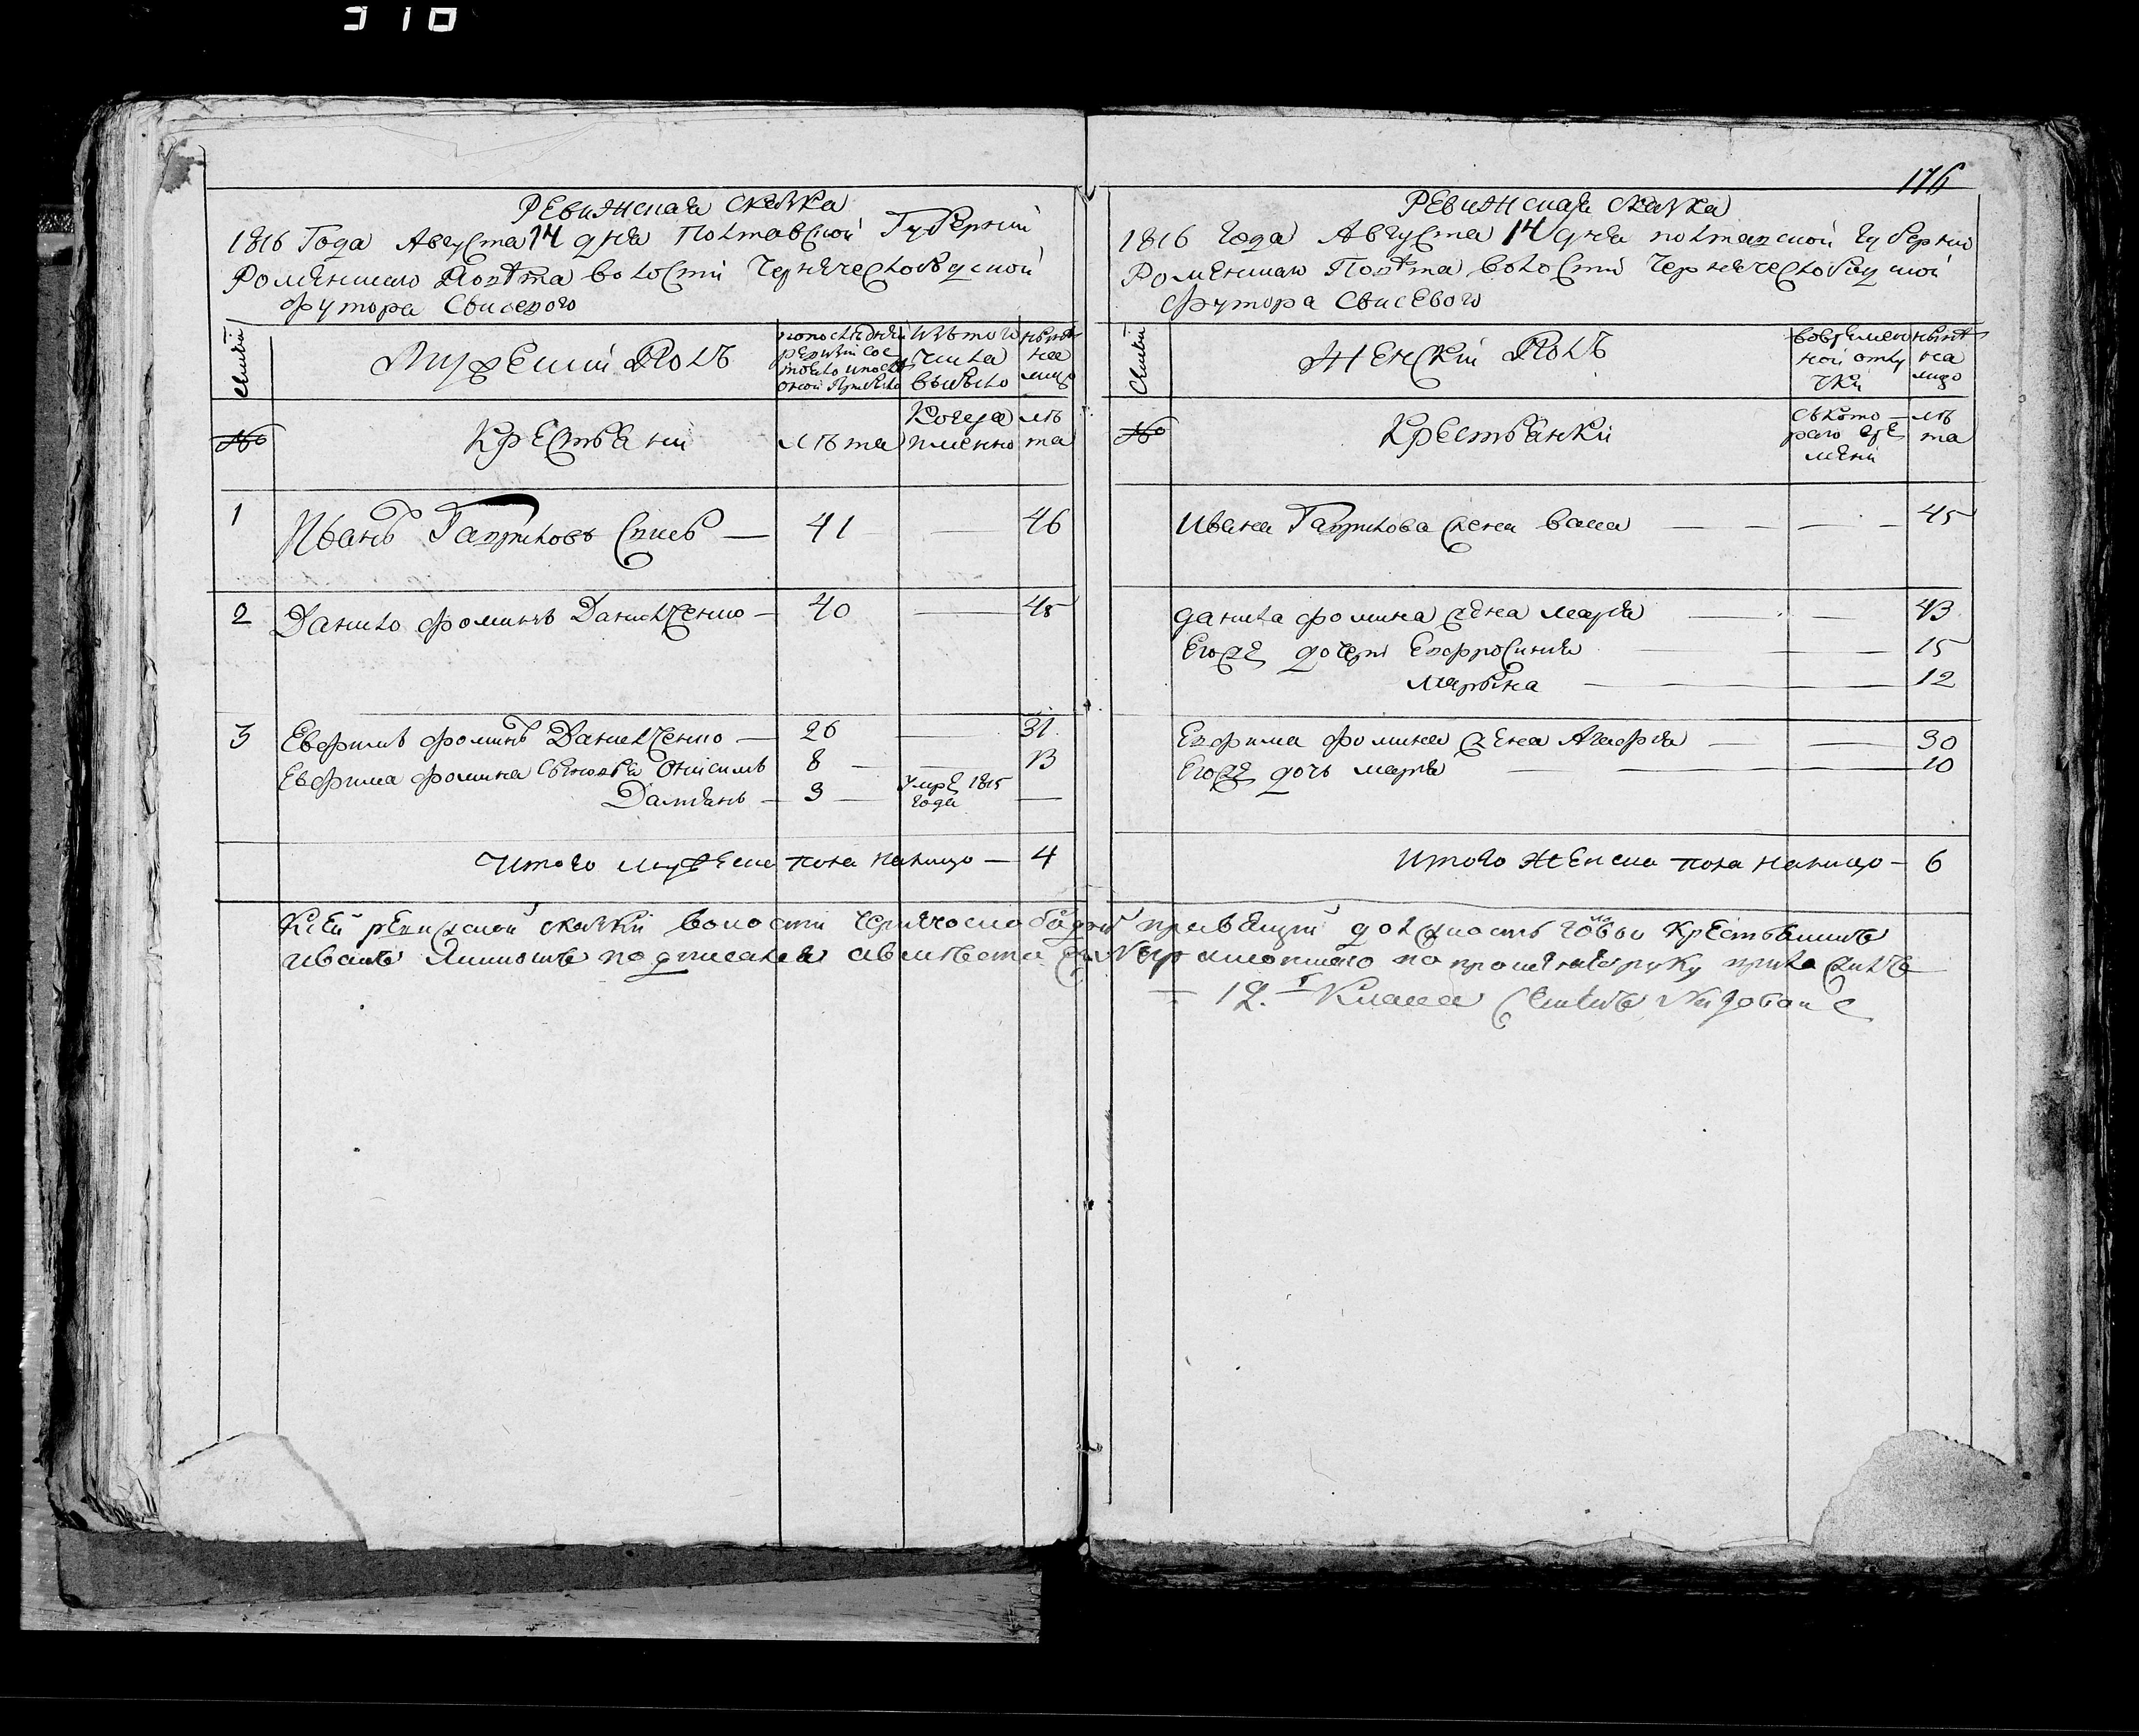 310
Ревижская скаска
1816 Года Августа 14 дня Полтавской Губернии
Роменского Повета волости Чернечеслободской
футора Свисевого
Мужеский Полъ
по последней ревизии состояло и после оной прибыло
изъ того числа выбыло
ныне на лицо
№
Крестьяни
лѣта
Когда именно
лѣта
1 Иванъ Гавриловъ Свись — 41 — 46
2 Данило фоминъ Данильченко — 40 — 45
3 Евфимъ фоминъ Данильченко — 26 — 31
Евфима фомина сыновья Онисимъ 8 — 13
Дамианъ — 3 — Умре 1815 года —
Итого мужеска пола налицо — 4
176
Ревижская скаска
1816 года Августа 14 дня полтавской губернии
Роменского Повета волости Чернечеслободской
футора Свисевого
Женский Полъ
во временной отлучки
ныне на лицо
№
Крестьянки
съ которого времени
лѣта
Ивана Гаврилова жена — — — — 45
данила фомина жена марья — — 43
Егоже дочери Евфросиния — — 15
марьяна — — 12
Евфима фомина жена Агафия — — 30
Егоже дочь марья — — — 10
Итого женска пола налицо — 6
К сей ревижской скаски волости Чернечослободской правящий должность головы Крестьянинъ
иванъ подписался а вместо его неграмотного по прошению руку приложилъ
— 12. Класа